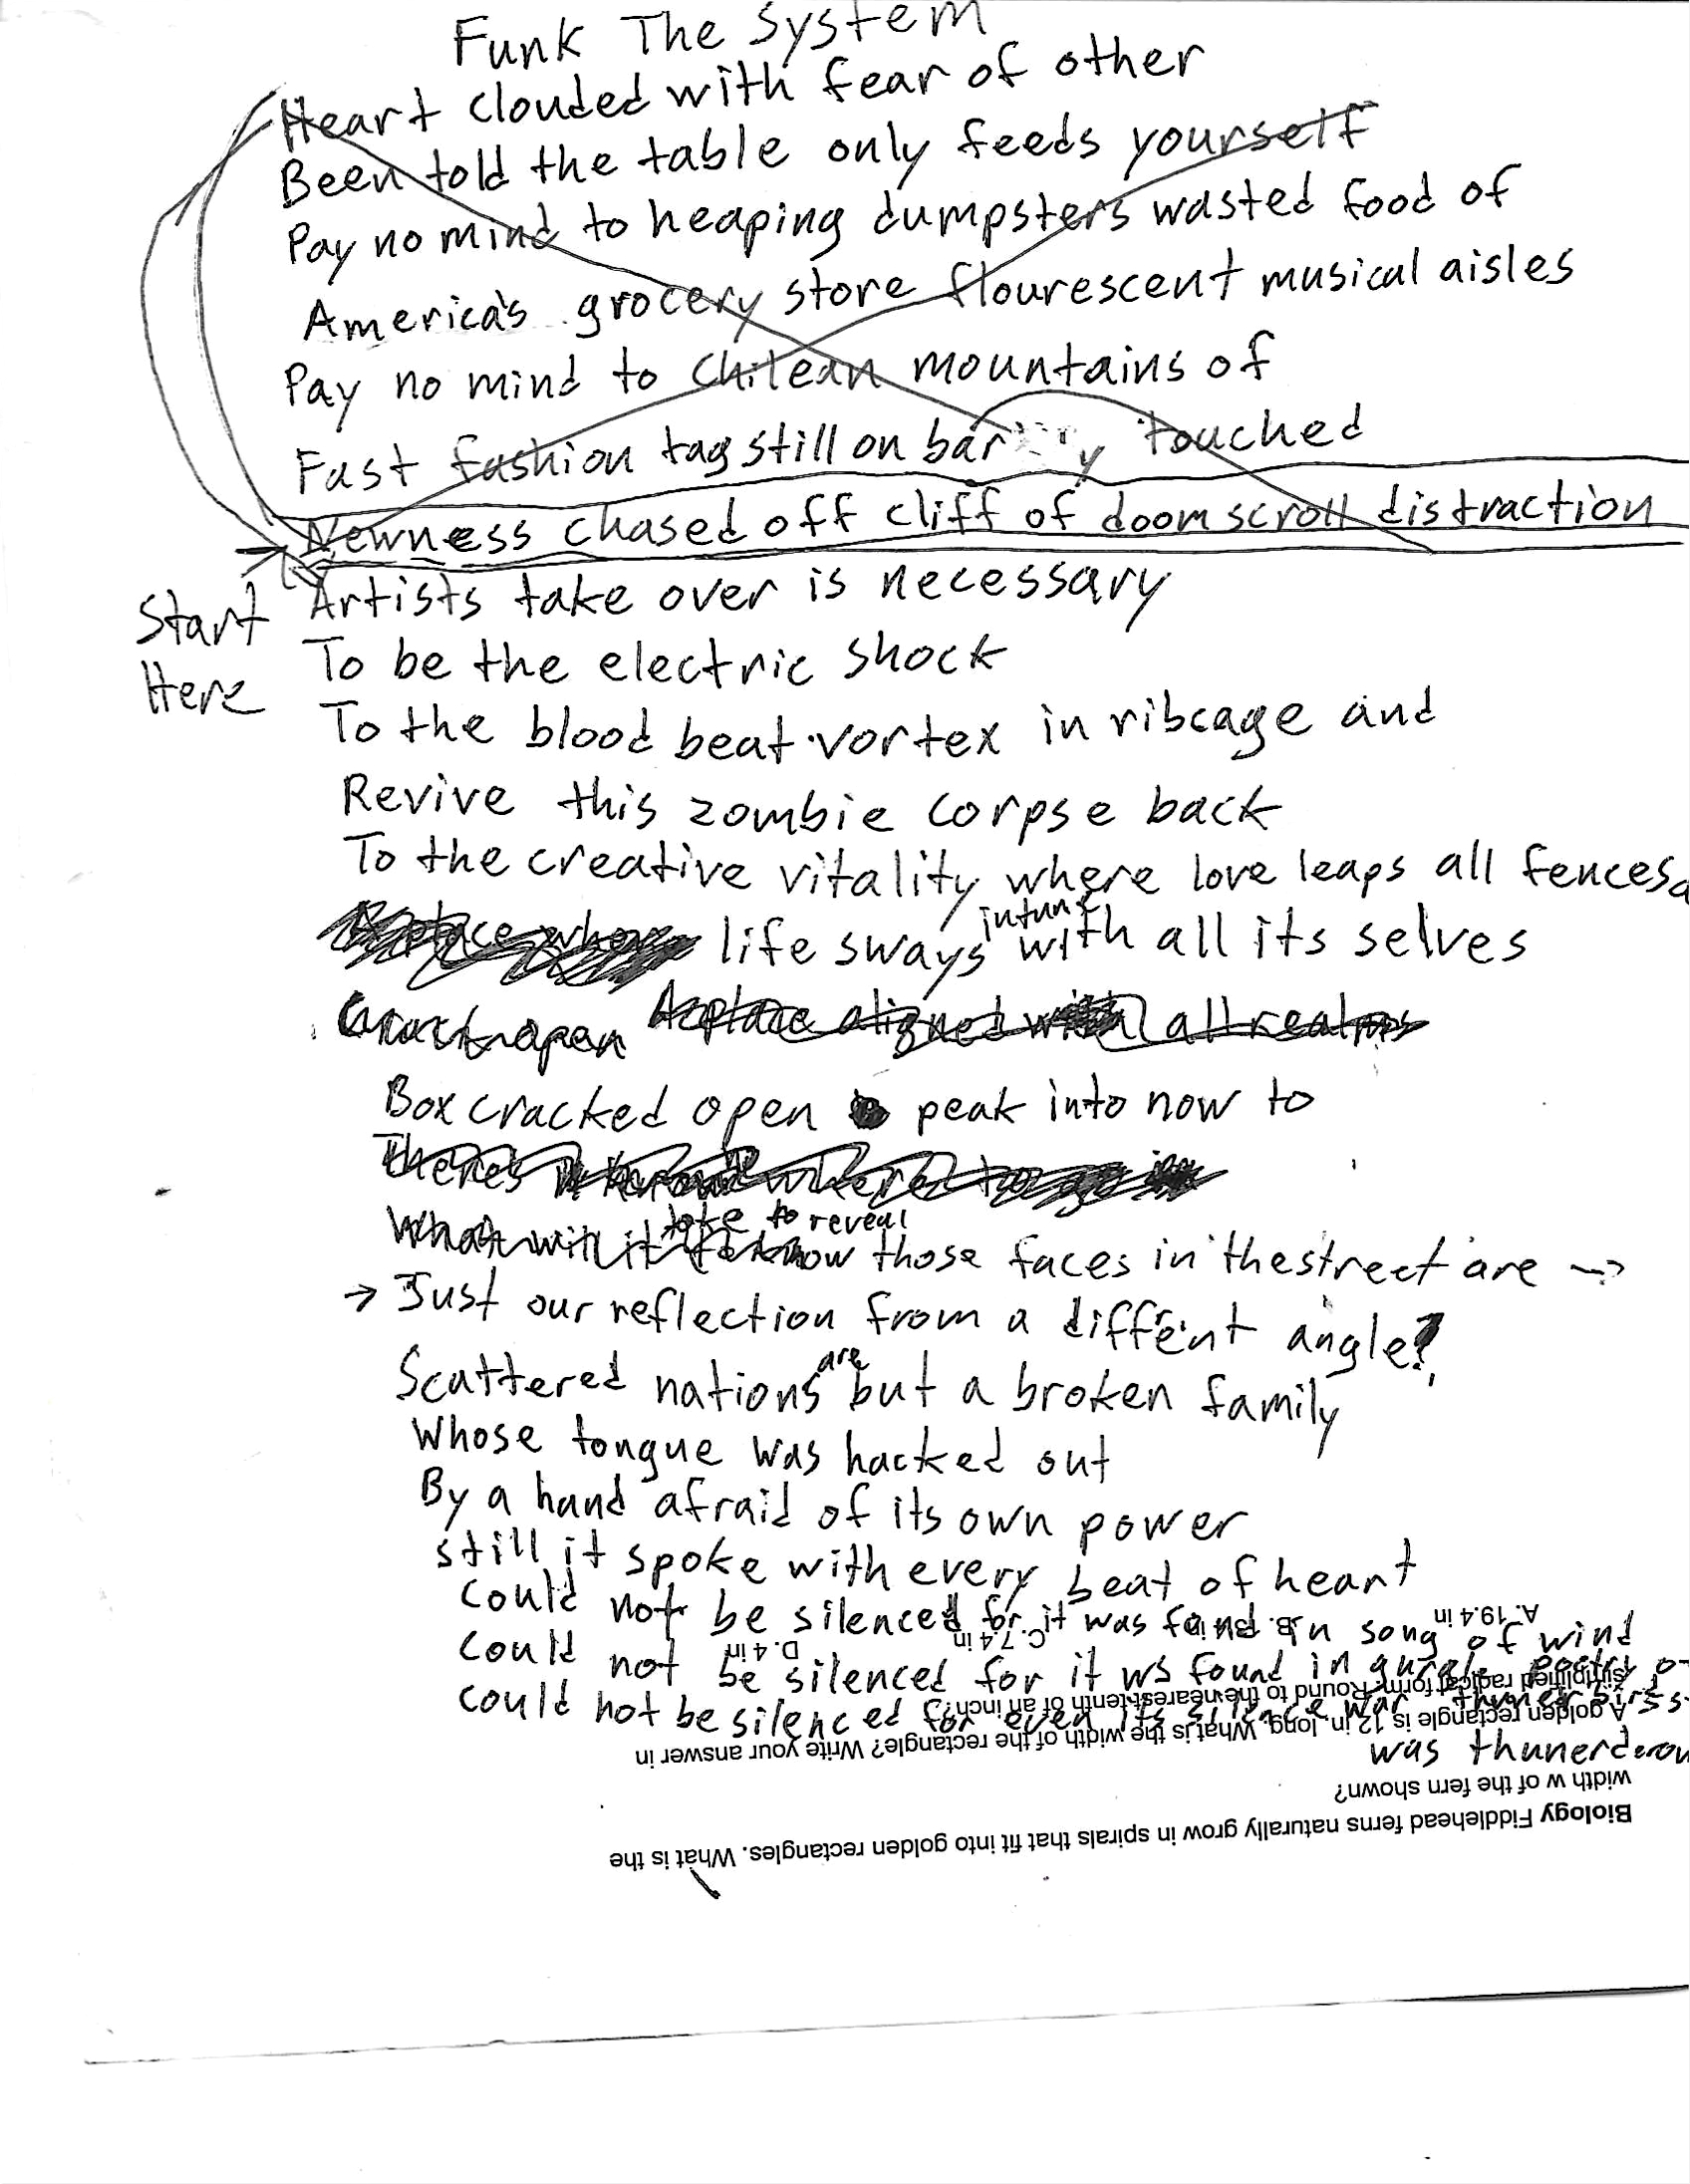 Funk The System
Heart clouded with fear of other
Been told the table only feeds yourself
Pay no mind to heaping dumpsters wasted food of
America's grocery store flourescent musical aisles
Pay no mind to Chilean mountains of
Fast fashion tag still on bar y touched
Newness chased off cliff of doomscroll distraction
Start Here
Artists take over is necessary
To be the electric shock
To the blood beat vortex in ribcage and
Revive this zombie corpse back
To the creative vitality where love leaps all fences
A place where life sways intune with all its selves
Crack open A place aligned with all realms
Box cracked open peak into now to
What will it take to reveal
know those faces in the street are →
→ Just our reflection from a different angle?
Scattered nations are but a broken family
Whose tongue was hacked out
By a hand afraid of its own power
still it spoke with every beat of heart
could not be silenced for it was found in song of wind
could not be silenced for it ws found in gurgle poetry
could not be silenced for even its silence was
was thunerderou
A. 19.4 in B. 8.4 in C. 7.4 in D. 4 in
A golden rectangle is 12 in. long. What is the width of the rectangle? Write your answer in
simplified radical form. Round to the nearest tenth of an inch?
Biology Fiddlehead ferns naturally grow in spirals that fit into golden rectangles. What is the
width w of the fern shown?